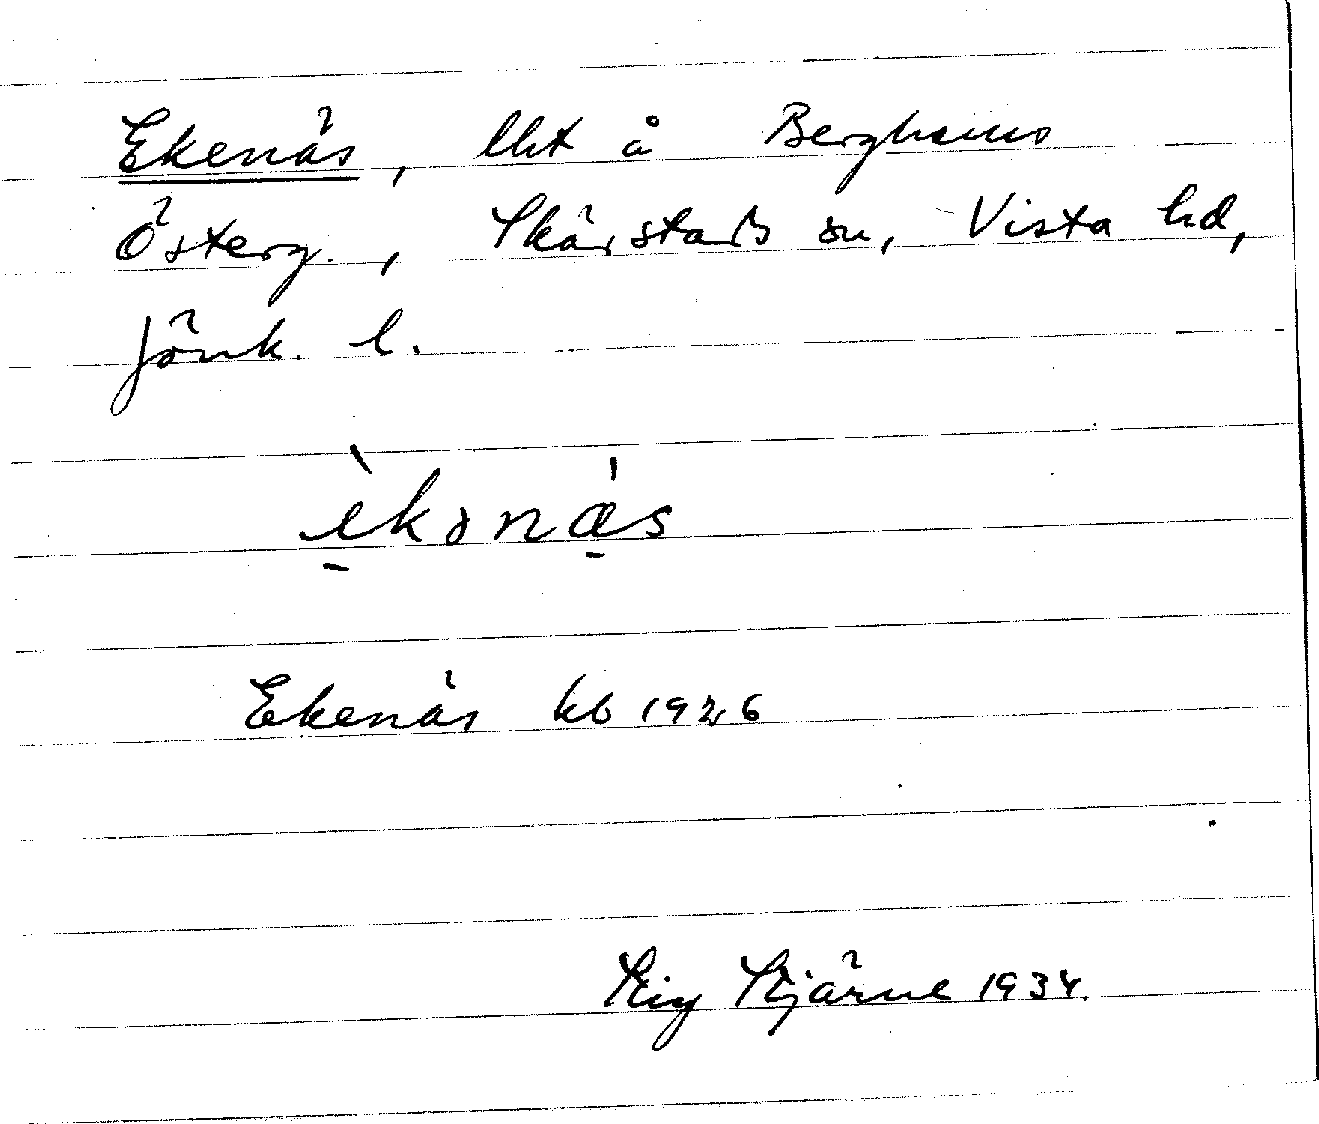 Ekenäs, lht å Berghems
Österg., Skärstads sn, Vista hd,
Jönk. l.
èkənǽs
Ekenäs kb 1926
Stig Stjärne 1934.